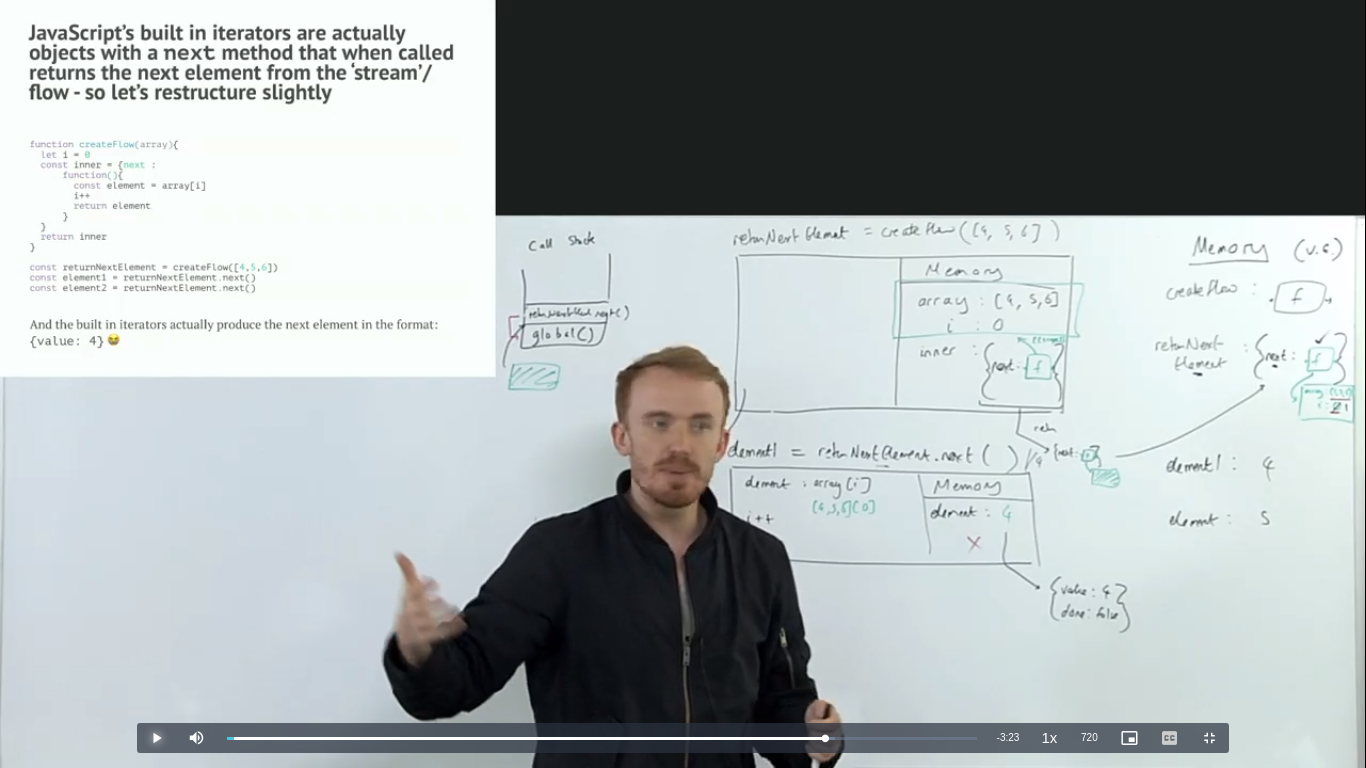 JavaScript’s built in iterators are actually
objects with a next method that when called
returns the next element from the ‘stream’/
flow - so let’s restructure slightly
function createFlow(array){
let i = 0
const inner = {next :
function(){
const element = array[i]
i++
return element
}
}
return inner
}
const returnNextElement = createFlow([4,5,6])
const element1 = returnNextElement.next()
const element2 = returnNextElement.next()
And the built in iterators actually produce the next element in the format:
{value: 4} 😅
Call Stack
returnNextElement.next()
global()
returnNextElement = createFlow([4, 5, 6])
Memory
array : [4, 5,6]
i : 0
inner : {next: f}
retn
{next:
element1 = returnNextElement.next ( )
element : array[i]
[4,5,6][0]
i++
Memory
element : 4
X
{value : 4
done: false}
Memory (v.s.)
createFlow : f
returnNext
Element : {next: f}
element1 : 4
element : 5
-3:23
1x
720
CC